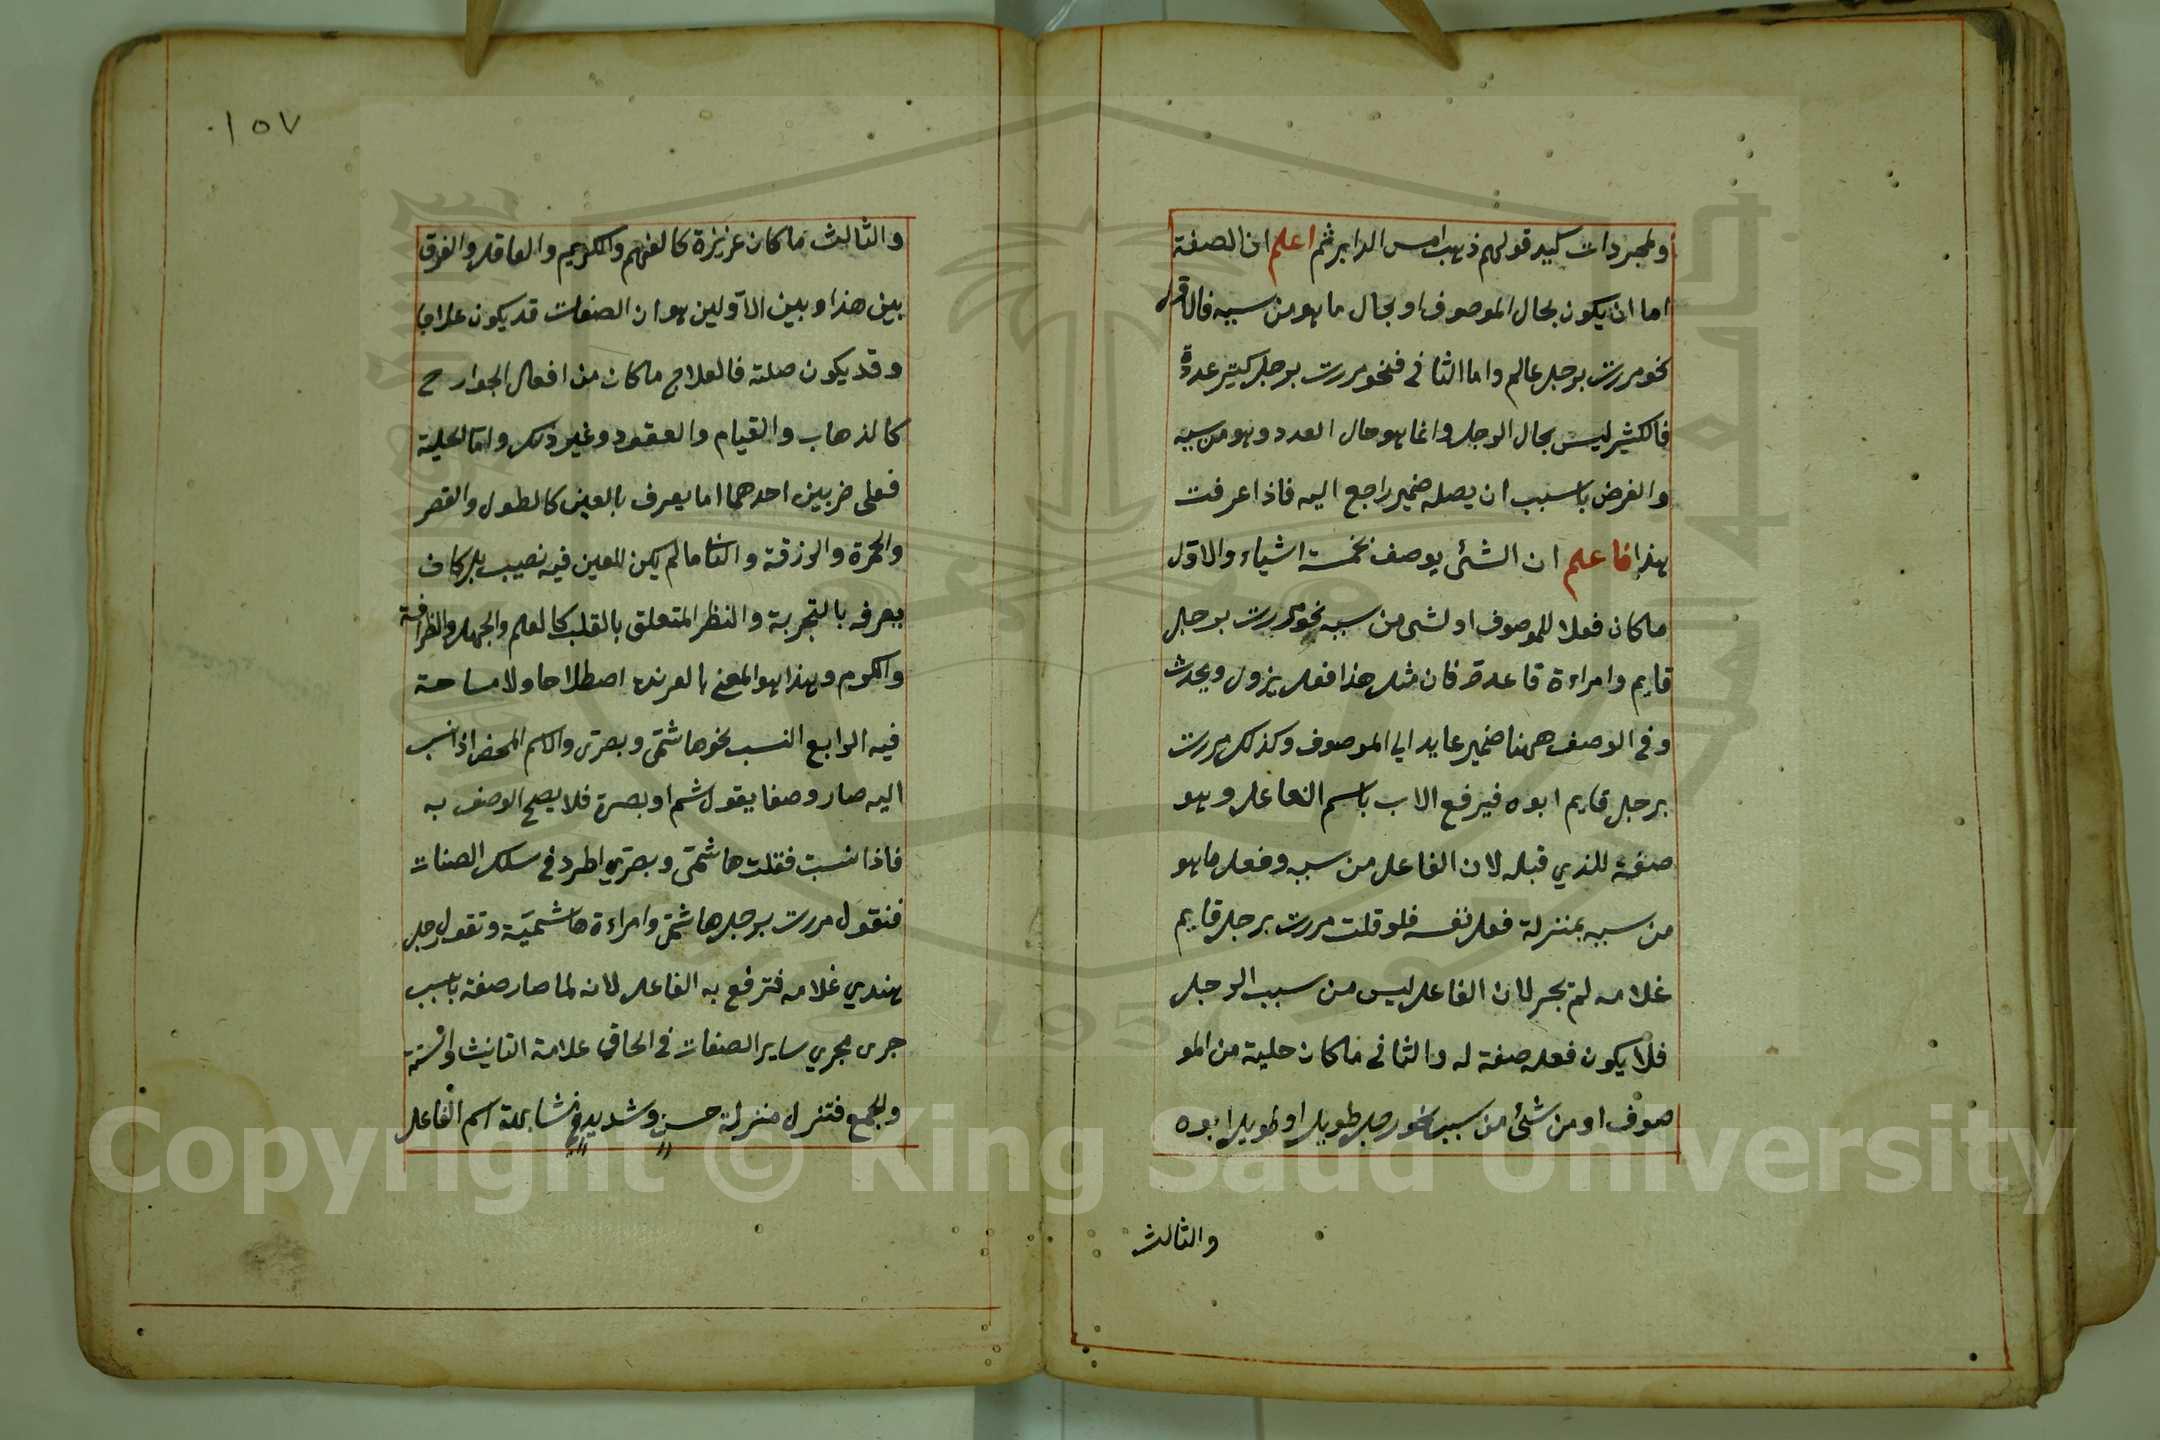 ولمجردات كيد قولهم ذهب امس الدابر ثم اعلم ان الصفة
اما ان يكون بحال الموصوف او بحال ما هو من سببه فالاول
نحو مررت برجل عالم واما الثانى فنحو مررت برجل كثير عدوة
فالكثير ليس بحال الرجل وانما هو حال العدد وهو من سببه
والغرض بالسبب ان يصله ضمير راجع اليه فاذا عرفت
هذا فاعلم ان الشئ يوصف بخمسة اشياء والاول
ما كان فعلا للموصوف او لشئ من سببه نحو مررت برجل
قايم وامراءة قاعدة فان مثل هذا فعل يزول ويحدث
وفى الوصف ههنا ضمير عايد الى الموصوف وكذلك مررت
برجل قايم ابوه فيرفع الاب باسم الفاعل وهو
صفة للذي قبله لان الفاعل من سببه وفعل ما هو
من سببه بمنزلة فعل نفسه فلو قلت مررت برجل قايم
غلامه لم تجر لان الفاعل ليس من سبب الرجل
فلا يكون فعله صفة له والثانى ما كان حلية من المو
صوف او من شئ من سببه نحو رجل طويل او طويل ابوه
والثالث
١٥٧
والثالث ما كان عزيزة كالفهم والكريم والعاقل والفرق
بين هذا وبين الاولين هو ان الصفات قد يكون علاجا
وقد يكون صلته فالعلاج ما كان من افعال الجوارح
كالذهاب والقيام والعقود وغير ذلك واما الحلية
فعلى ضربين احدهما ما يعرف بالعين كالطول والقصر
والحمرة والزرقة والثانى ما لم يكن للعين فيه نصيب بل كان
يعرفه بالتجربة والنظر المتعلق بالقلب كالعلم والجهل والظرافة
والكرم وهذا هو المعنى بالعريزة اصطلاحا ولا مساحة
فيه الرابع النسب نحو هاشمى وبصرى والاسم المحض اذا نسب
اليه صار وصفا يقول هاشم او بصرة فلا يصح الوصف به
فاذا نسبت فقلت هاشمى وبصري اطرد فى سلك الصفات
فنقول مررت برجل هاشمى وامراءة هاشمية وتقول رجل
هندي غلامه فترفع به الفاعل لانه لما صار صفة بالسبب
جرى مجري ساير الصفات فى الحاق علامة التانيث والتثنية
والجمع فتنزل منزلة حسن وشديد فى مشابهة اسم الفاعل